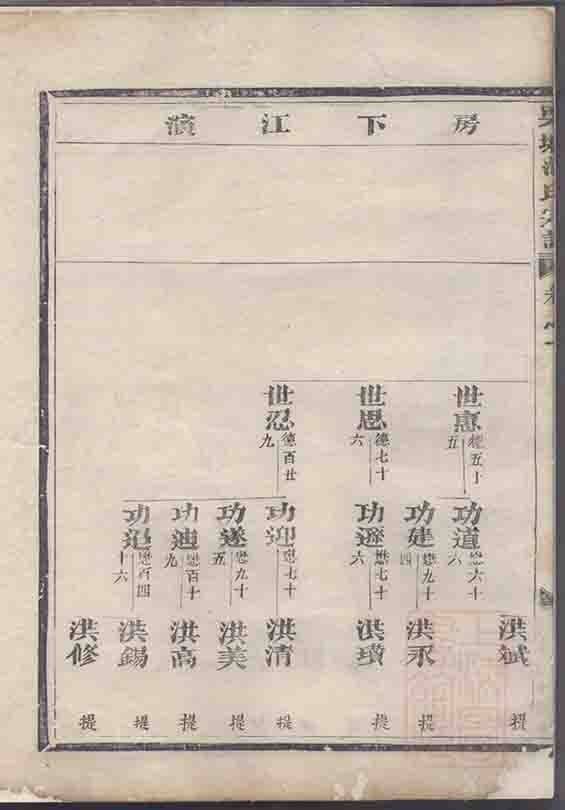 房下江演
世惠
德五十五
世恩
德七十六
世忍
德百廿九
功道
懋六十六
功建
懋九十四
功
懋七十六
功迎
懋七十
功遂
懋九十五
功迪
懋百十九
功
懋百四十六
洪斌
洪永
洪璜
洪清
洪美
洪高
洪錫
洪修
提
提
提
提
提
提
提
提
氏宗譜
卷